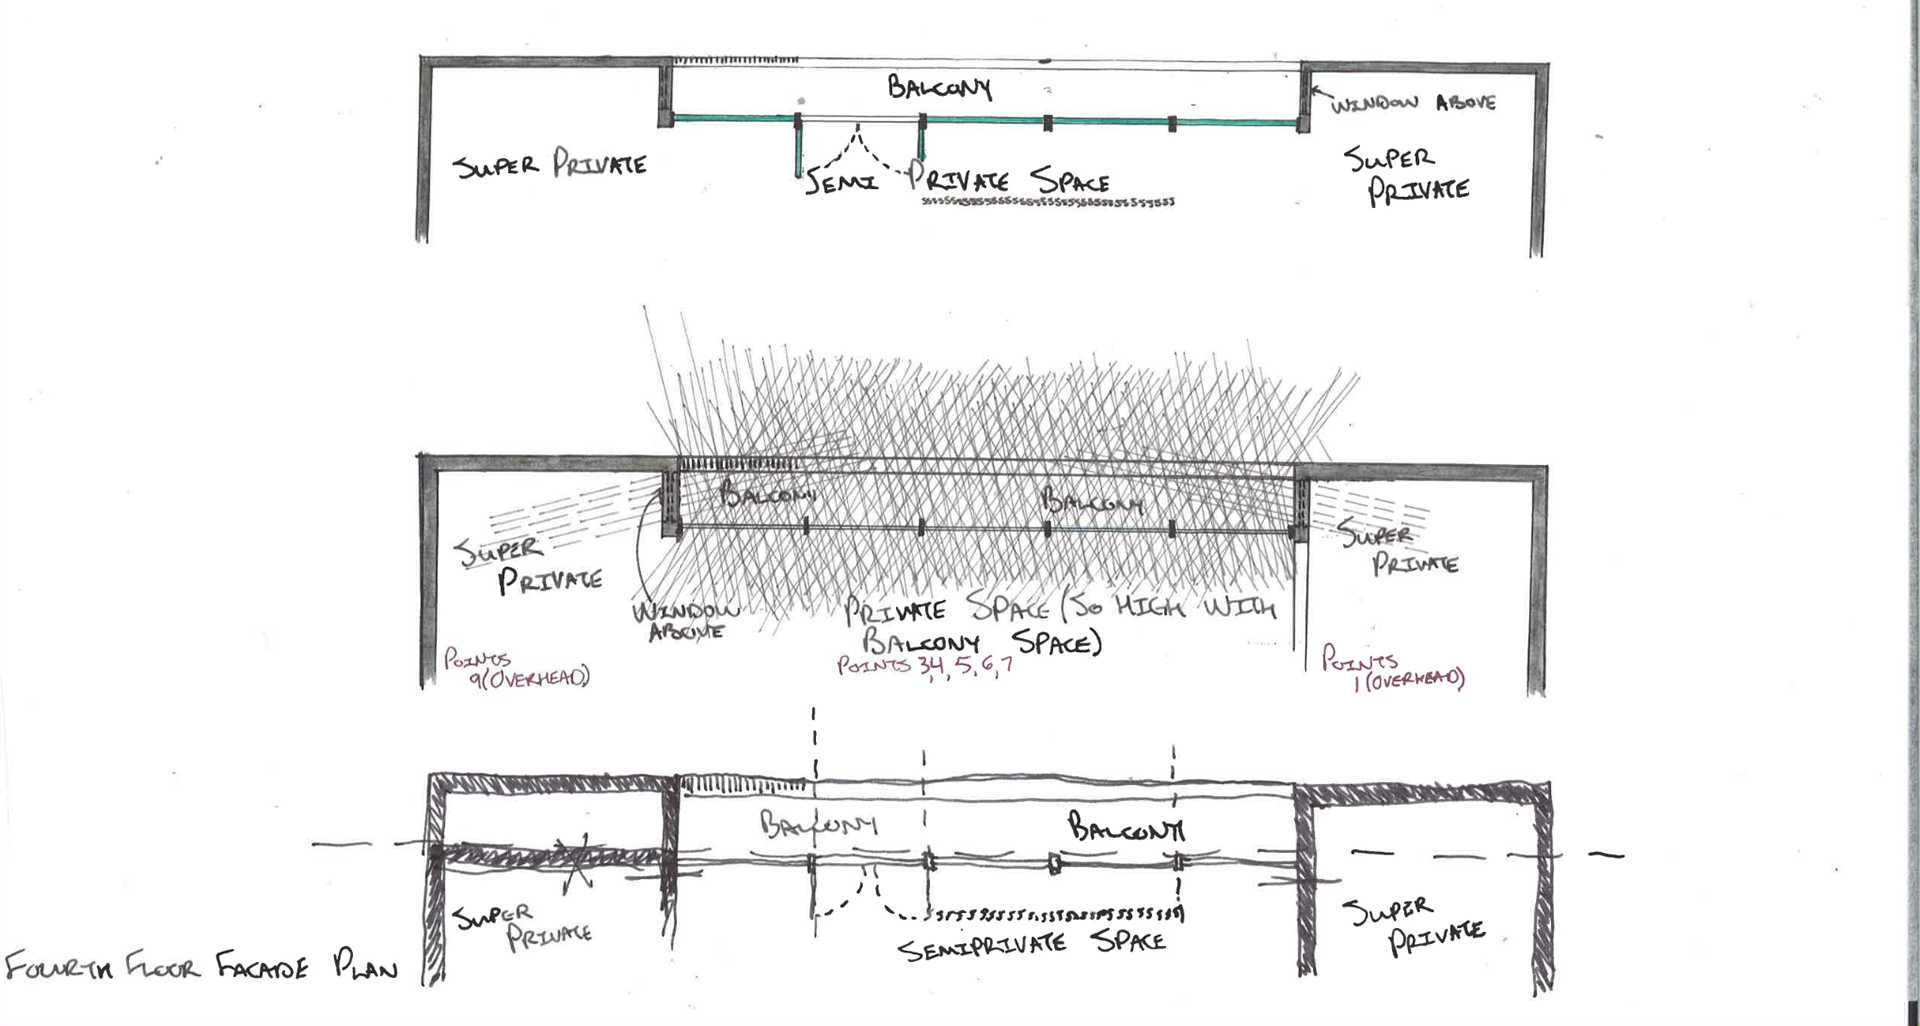 BALCONY
WINDOW ABOVE
SUPER PRIVATE
SEMI PRIVATE SPACE
SUPER
PRIVATE
BALCONY
BALCONY
SUPER
PRIVATE
SUPER
PRIVATE
WINDOW
ABOVE
PRIVATE SPACE (SO HIGH WITH
BALCONY SPACE)
POINTS
9 (OVERHEAD)
POINTS 3,4, 5, 6, 7
POINTS
1 (OVERHEAD)
BALCONY
BALCONY
SUPER
PRIVATE
SEMIPRIVATE SPACE
SUPER
PRIVATE
FOURTH FLOOR FACADE PLAN